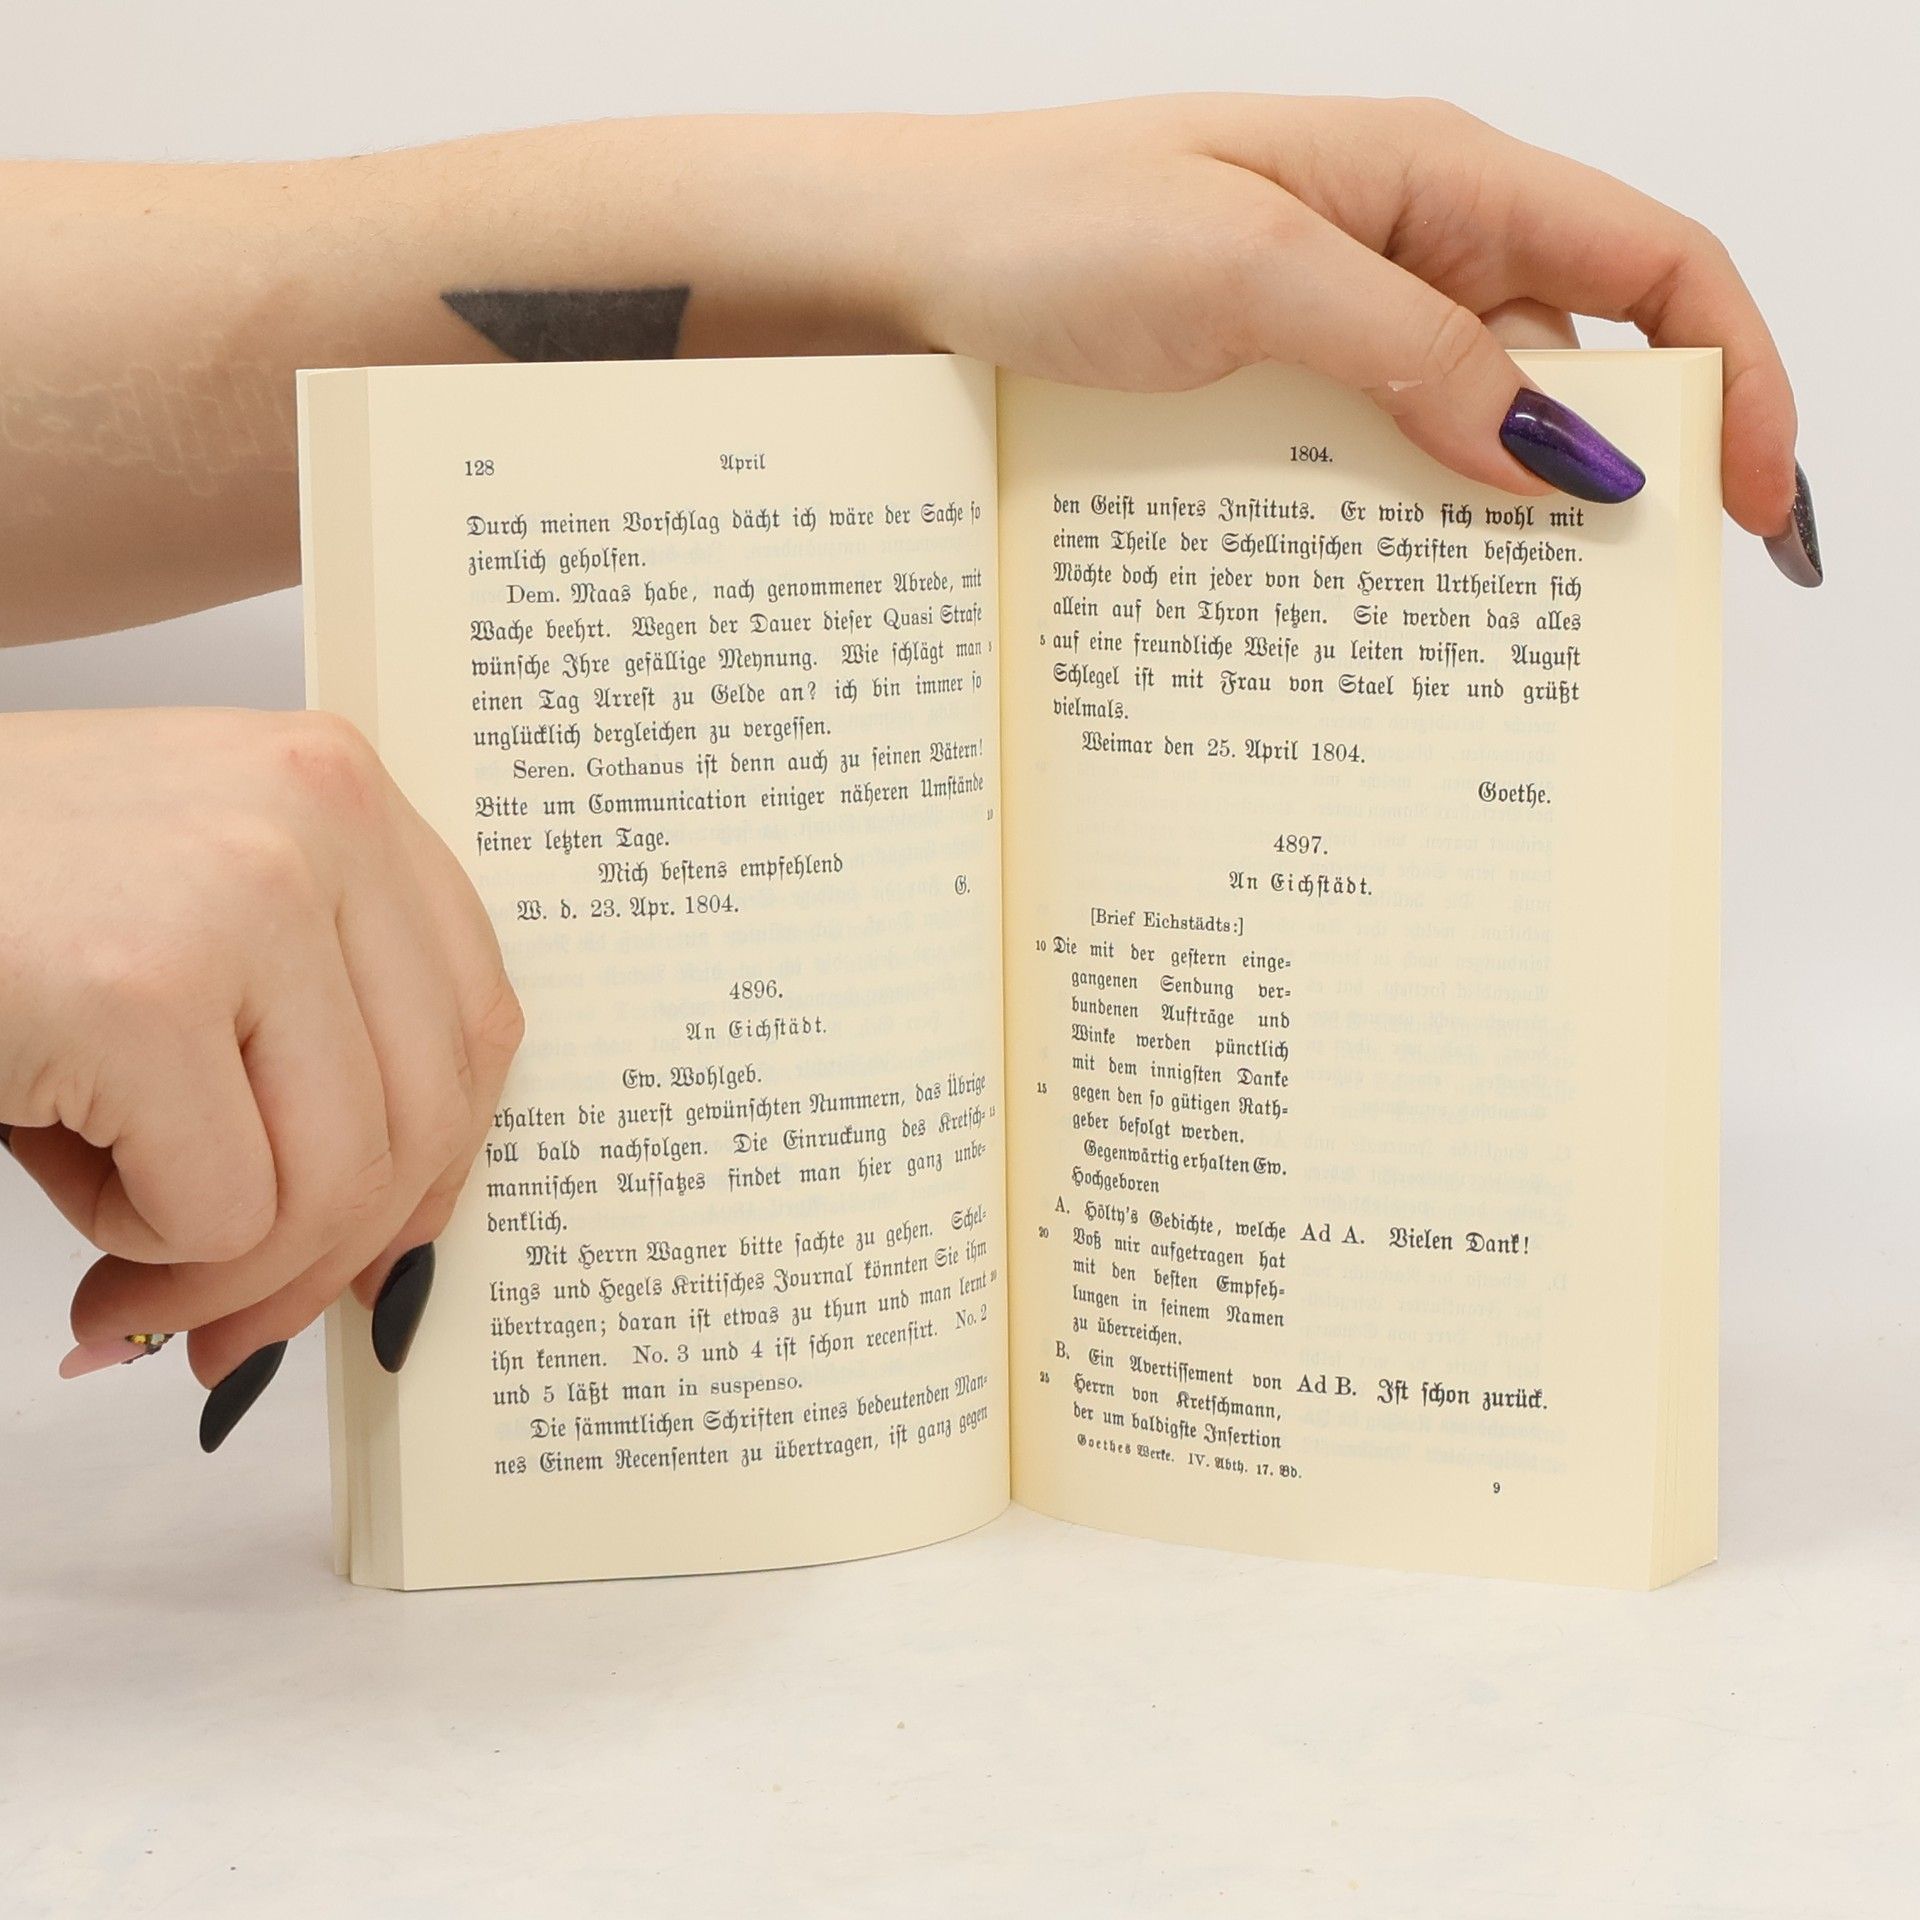 128 April
Durch meinen Vorschlag dächt ich wäre der Sache so
ziemlich geholfen.
Dem. Maas habe, nach genommener Abrede, mit
Wache beehrt. Wegen der Dauer dieser Quasi Strafe
wünsche Ihre gefällige Meynung. Wie schlägt man 5
einen Tag Arrest zu Gelde an? ich bin immer so
unglücklich dergleichen zu vergessen.
Seren. Gothanus ist denn auch zu seinen Vätern!
Bitte um Communication einiger näheren Umstände
seiner letzten Tage. 10
Mich bestens empfehlend
W. d. 23. Apr. 1804. G.
4896.
An Eichstädt.
Ew. Wohlgeb.
erhalten die zuerst gewünschten Nummern, das Übrige
soll bald nachfolgen. Die Einruckung des Kretsch- 15
mannischen Aufsatzes findet man hier ganz unbe-
denklich.
Mit Herrn Wagner bitte sachte zu gehen. Schel-
lings und Hegels Kritisches Journal könnten Sie ihm
übertragen; daran ist etwas zu thun und man lernt 20
ihn kennen. No. 3 und 4 ist schon recensirt. No. 2
und 5 läßt man in suspenso.
Die sämmtlichen Schriften eines bedeutenden Man-
nes Einem Recensenten zu übertragen, ist ganz gegen
1804.
den Geist unsers Instituts. Er wird sich wohl mit
einem Theile der Schellingischen Schriften bescheiden.
Möchte doch ein jeder von den Herren Urtheilern sich
allein auf den Thron setzen. Sie werden das alles
5 auf eine freundliche Weise zu leiten wissen. August
Schlegel ist mit Frau von Stael hier und grüßt
vielmals.
Weimar den 25. April 1804.
Goethe.
4897.
An Eichstädt.
[Brief Eichstädts:]
10 Die mit der gestern einge-
gangenen Sendung ver-
bundenen Aufträge und
Winke werden pünctlich
mit dem innigsten Danke
15 gegen den so gütigen Rath-
geber befolgt werden.
Gegenwärtig erhalten Ew.
Hochgeboren
A. Hölty's Gedichte, welche Ad A. Vielen Dank!
20 Voß mir aufgetragen hat
mit den besten Empfeh-
lungen in seinem Namen
zu überreichen.
B. Ein Avertissement von Ad B. Ist schon zurück.
25 Herrn von Kretschmann,
der um baldigste Insertion
Goethes Werke. IV. Abth. 17. Bd. 9